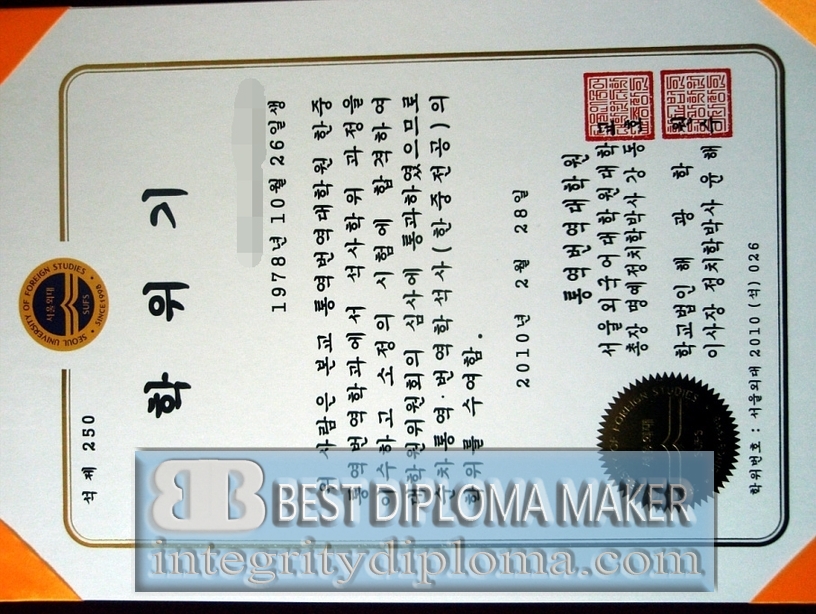 석 제 250
SEOUL UNIVERSITY OF FOREIGN STUDIES
서울외대
SUFS
SINCE 1998
학 위 기
1978년 10월 26일생
위 사람은 본교 통역번역대학원 한중
통역번역학과에서 석사학위 과정을
이수하고 소정의 시험에 합격하여
대학원위원회의 심사에 통과하였으므로
순차통역·번역학석사(한중전공)의
학위를 수여함.
2010년 2월 28일
통역번역대학원
서울외국어대학원대학교
총장 명예정치학박사 강 동
학교법인 해 광 학 원
이사장 정치학박사 유 해
OF FOREIGN STUDIES
서울외대
학위번호 : 서울외대 2010 (석) 026
BEST DIPLOMA MAKER
integritydiploma.com